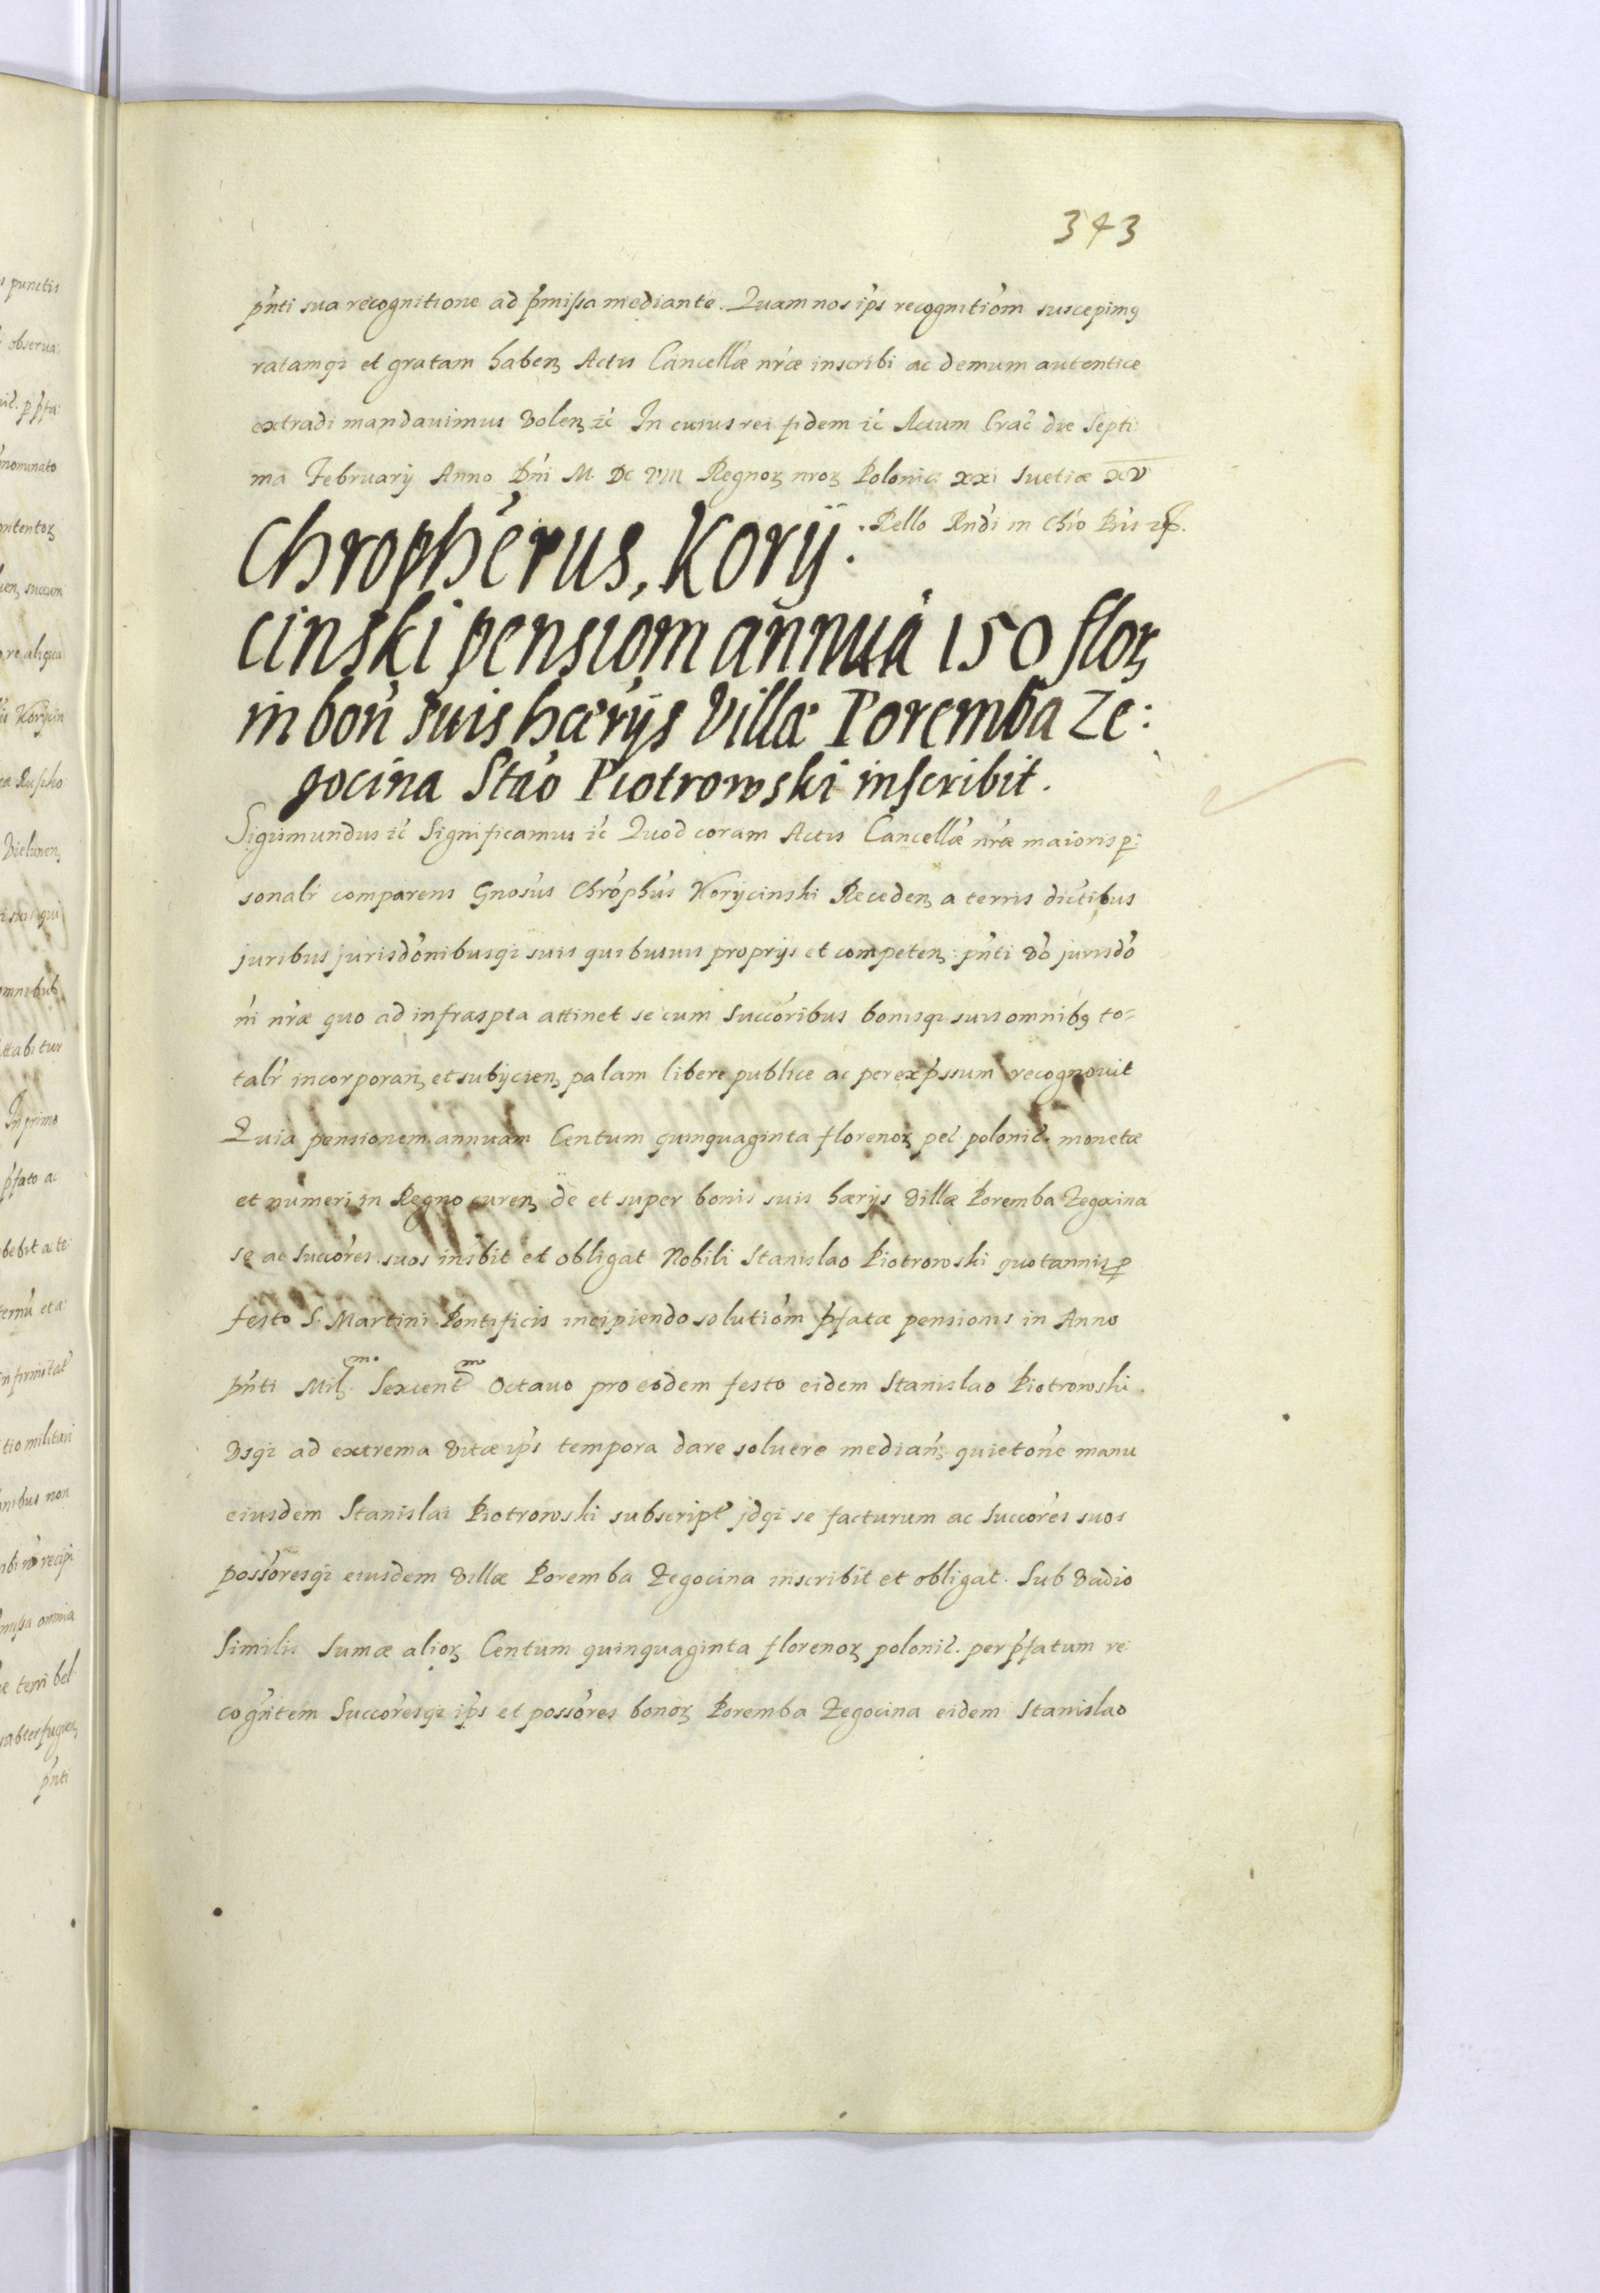 343
pńti sua recognitione ad p̃missa mediante. Quam nos ips recognitiom suscepimꝯ
ratamqꝫ et gratam habenꝫ Actis Cancellæ nrǽ inscribi ac demum autentice
extradi mandauimus Volenꝫ ꝛc In cuius rei fidem ꝛc Actum Crac̃ die Septi
ma February Anno Dńi M. DC VIII Regnoꝝ nroꝝ Poloniæ xxi Suetiæ XV
Rello Rńdi in Chro Pris
Chropherus, Kory
cinski pensiom annuã 150 floꝝ
in boń suis hærijs Villæ Poremba Ze:
gocina Stao Piotrowski inscribit.
Sigismundus ꝛc Significamus ꝛc Quod coram Actis Cancellæ nrǽ maioris p:
sonalr comparens Gnosus Chrophus Korycinski Recedenꝫ a terris dictibus
juribus jurisdonibusqꝫ suis quibusuis proprijs et competenꝫ pńti vo jurisdo
ni nrǽ quo ad infraspta attinet se cum Succoribus bonisqꝫ suis omnibꝯ to=
talr incorporanꝫ et subijcienꝫ palam libere publice ac per exp̃ssum recognouit
Quia pensionem annuam Centum quinquaginta florenoꝝ pec̃ polonic̃. monetæ
et numeri in Regno curenꝫ de et super bonis suis hærijs Villæ Poremba Zegocina
se ac Succores suos insbit et obligat Nobili Stanislao Piotrowski quotannis ꝓ
festo S. Martini Pontificis incipiendo solutiom p̃fatæ pensionis in Anno
pńti Milᵐᵒ Sexcentᵐᵒ Octauo pro eodem festo eidem Stanislao Piotrowski
Vsqꝫ ad extrema vitæ ips tempora dare soluere medianꝫ quietone manu
eiusdem Stanislai Piotrowski subscript jdqꝫ se facturum ac Succores suos
possoresqꝫ eiusdem Villæ Poremba Zegocina inscribit et obligat. Sub Vadio
Similis Sumæ alioꝝ Centum quinquaginta florenoꝝ polonic̃. per p̃fatum re
cogńtem Succoresqꝫ ips et possores bonoꝝ Poremba Zegocina eidem Stanislao